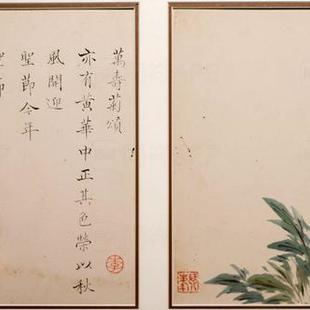 萬壽菊頌
亦有黃華中正其色榮以秋
風開迎
聖節今年